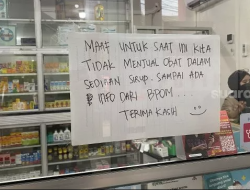 MAAF UNTUK SAAT INI KITA
TIDAK MENJUAL OBAT DALAM
SEDIAAN SIRUP. SAMPAI ADA
INFO DARI BPOM...
TERIMA KASIH